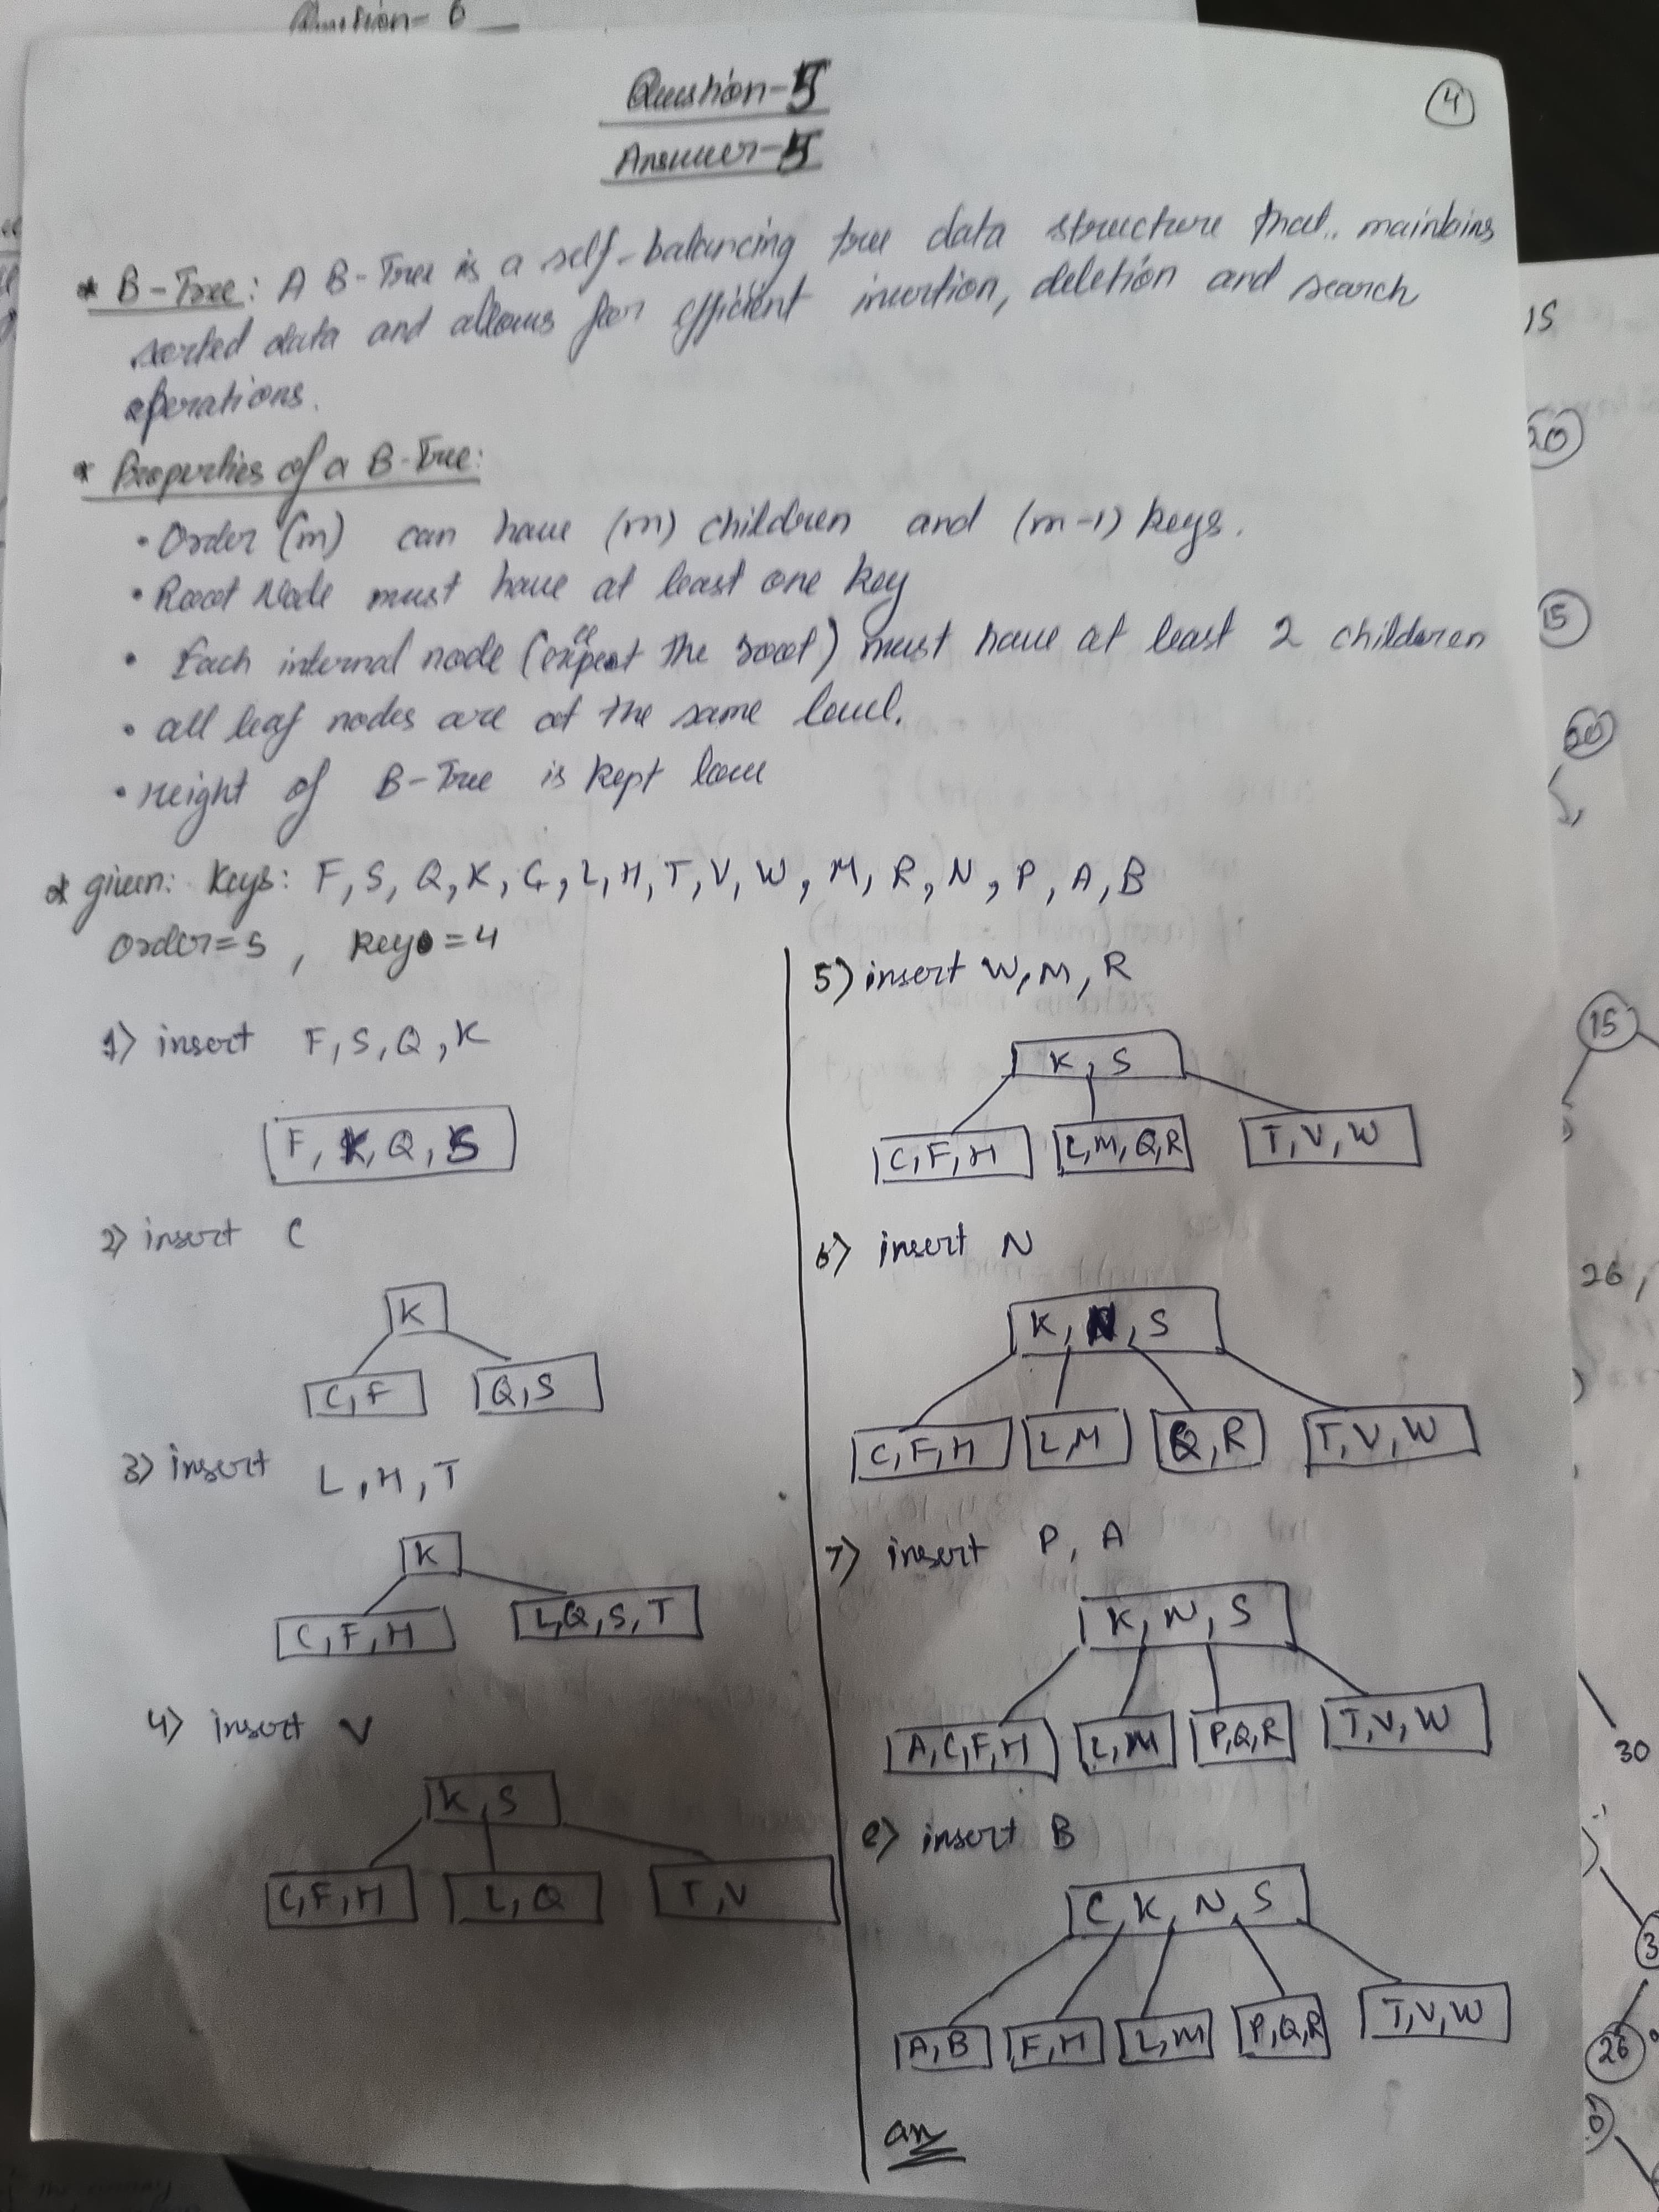 Question- 6
Question-5
4
Answer-5
* B-Tree: A B-Tree is a self-balancing tree data structure that.. maintains
sorted data and allows for efficient insertion, deletion and search
operations.
* Properties of a B-Tree:
• Order (m) can have (m) children and (m-1) keys.
• Root Node must have at least one key
• Each internal node (except the root) must have at least 2 children
• all leaf nodes are at the same level.
• Height of B-Tree is kept low
* given: Keys: F, S, Q, K, C, L, H, T, V, W, M, R, N, P, A, B
Order=5, Keys=4
1) insert F, S, Q, K
F, K, Q, S
2) insert C
K
C, F Q, S
3) insert L, H, T
K
C, F, H L, Q, S, T
4) insert V
K, S
C, F, H L, Q T, V
5) insert W, M, R
K, S
C, F, H L, M, Q, R T, V, W
6) insert N
K, N, S
C, F, H L, M Q, R T, V, W
7) insert P, A
K, N, S
A, C, F, H L, M P, Q, R T, V, W
8) insert B
C, K, N, S
A, B F, H L, M P, Q, R T, V, W
an
15
20
15
20
15
26,
30
3
26